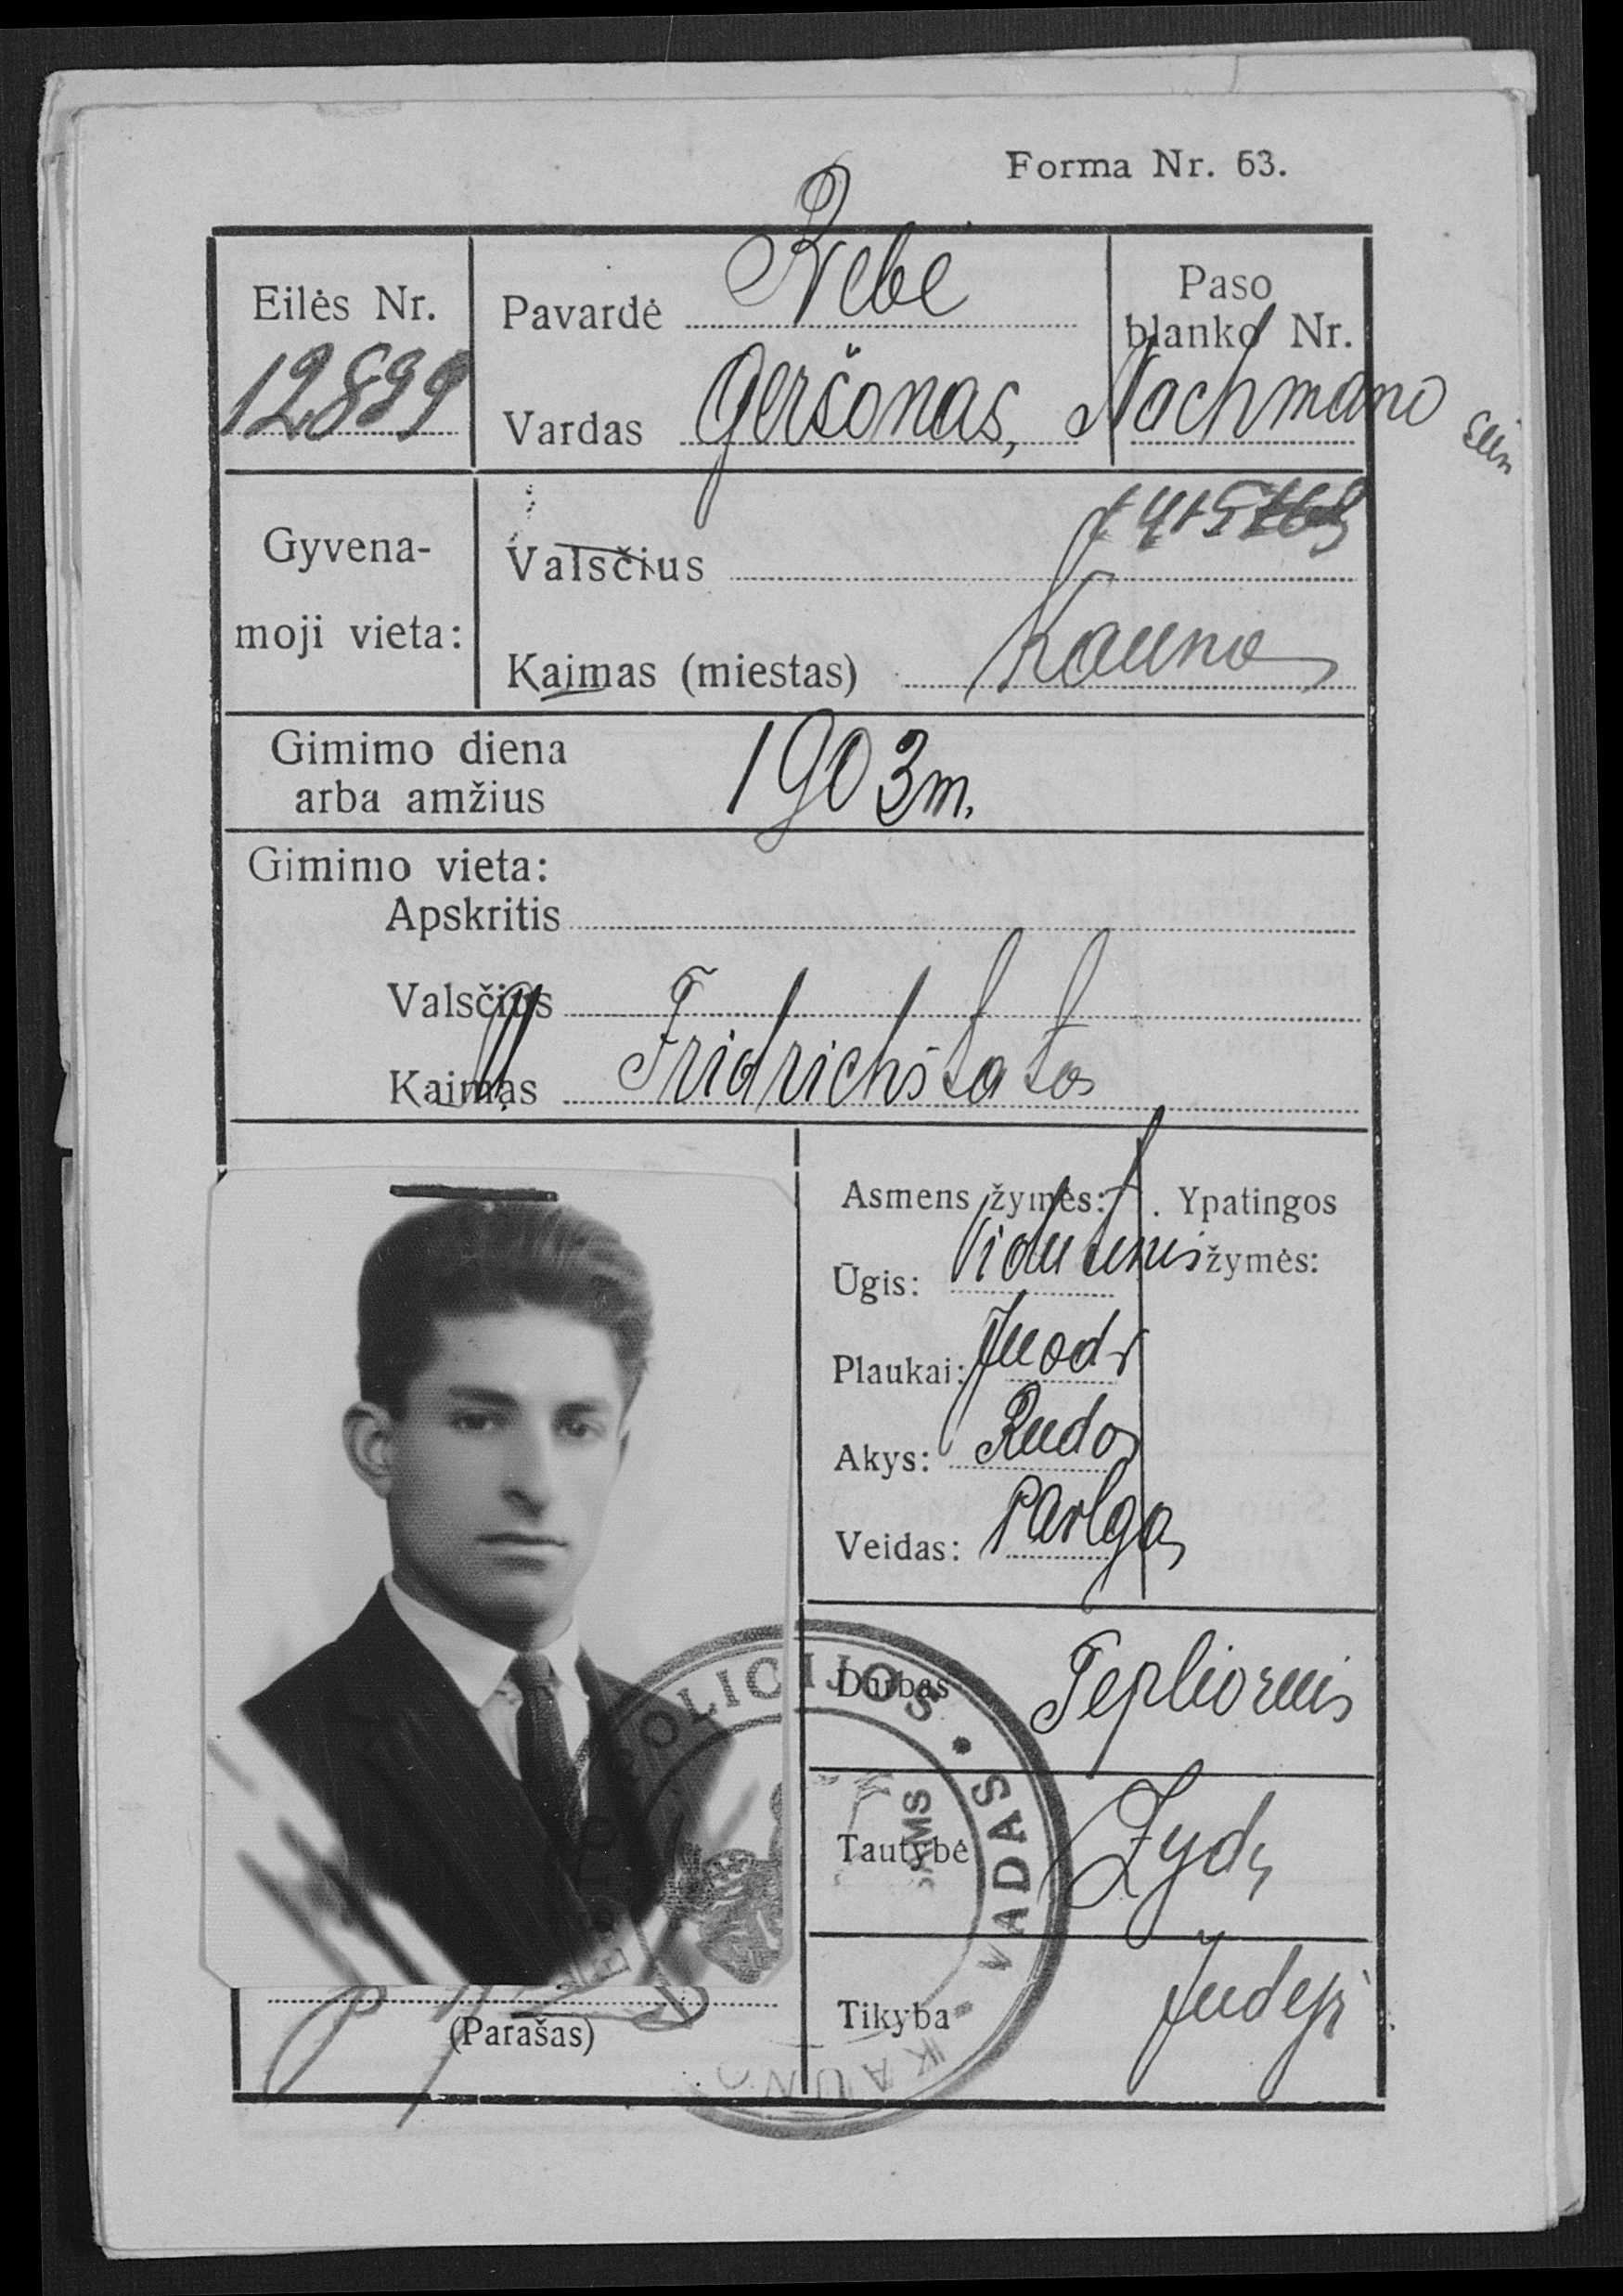 Forma Nr. 63.
Eilės Nr.
12899
Pavardė Rebe
Vardas Geršonas, Nochmano sūn
Paso
blanko Nr.
Gyvena-
moji vieta:
Valsčius
Kaimas (miestas) Kaunas
Gimimo diena
arba amžius
1903 m.
Gimimo vieta:
Apskritis
Valsčius
Kaimas Fridrichštatas
Asmens žymės:
Ūgis: Vidutinis
Plaukai: Juodi
Akys: Rudos
Veidas: Pailgas
Ypatingos
žymės:
Darbas
Tautybė Žydų
Tikyba Judėjų
(Parašas)
POLICIJOS • VADAS • KAUNO